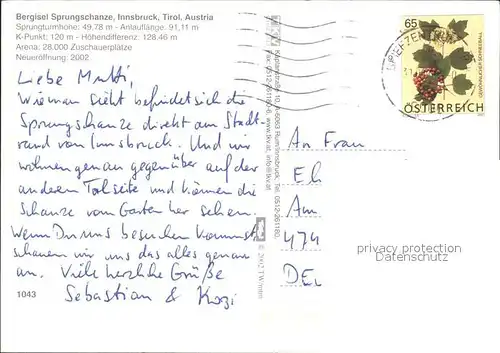 Bergisel Sprungschanze, Innsbruck, Tirol, Austria
Sprungturmhöhe: 49,78 m - Anlauflänge: 91,11 m
K-Punkt: 120 m - Höhendifferenz: 128,46 m
Arena: 28.000 Zuschauerplätze
Neueröffnung: 2002
Liebe Mutti,
Wie man sieht befindet sich die
Sprungschanze direkt am Stadt-
rand von Innsbruck. Und wir
wohnen genau gegenüber auf der
anderen Talseite und können die
Schanze vom Garten her sehen.
Wenn Du uns besuchen kommst
schauen wir uns das alles genau
an. Viele herzliche Grüße
Sebastian &
1043
65
GEWÖHNLICHER SCHNEEBALL
ÖSTERREICH
An Frau
El
Am
474
DEL
privacy protection
Datenschutz